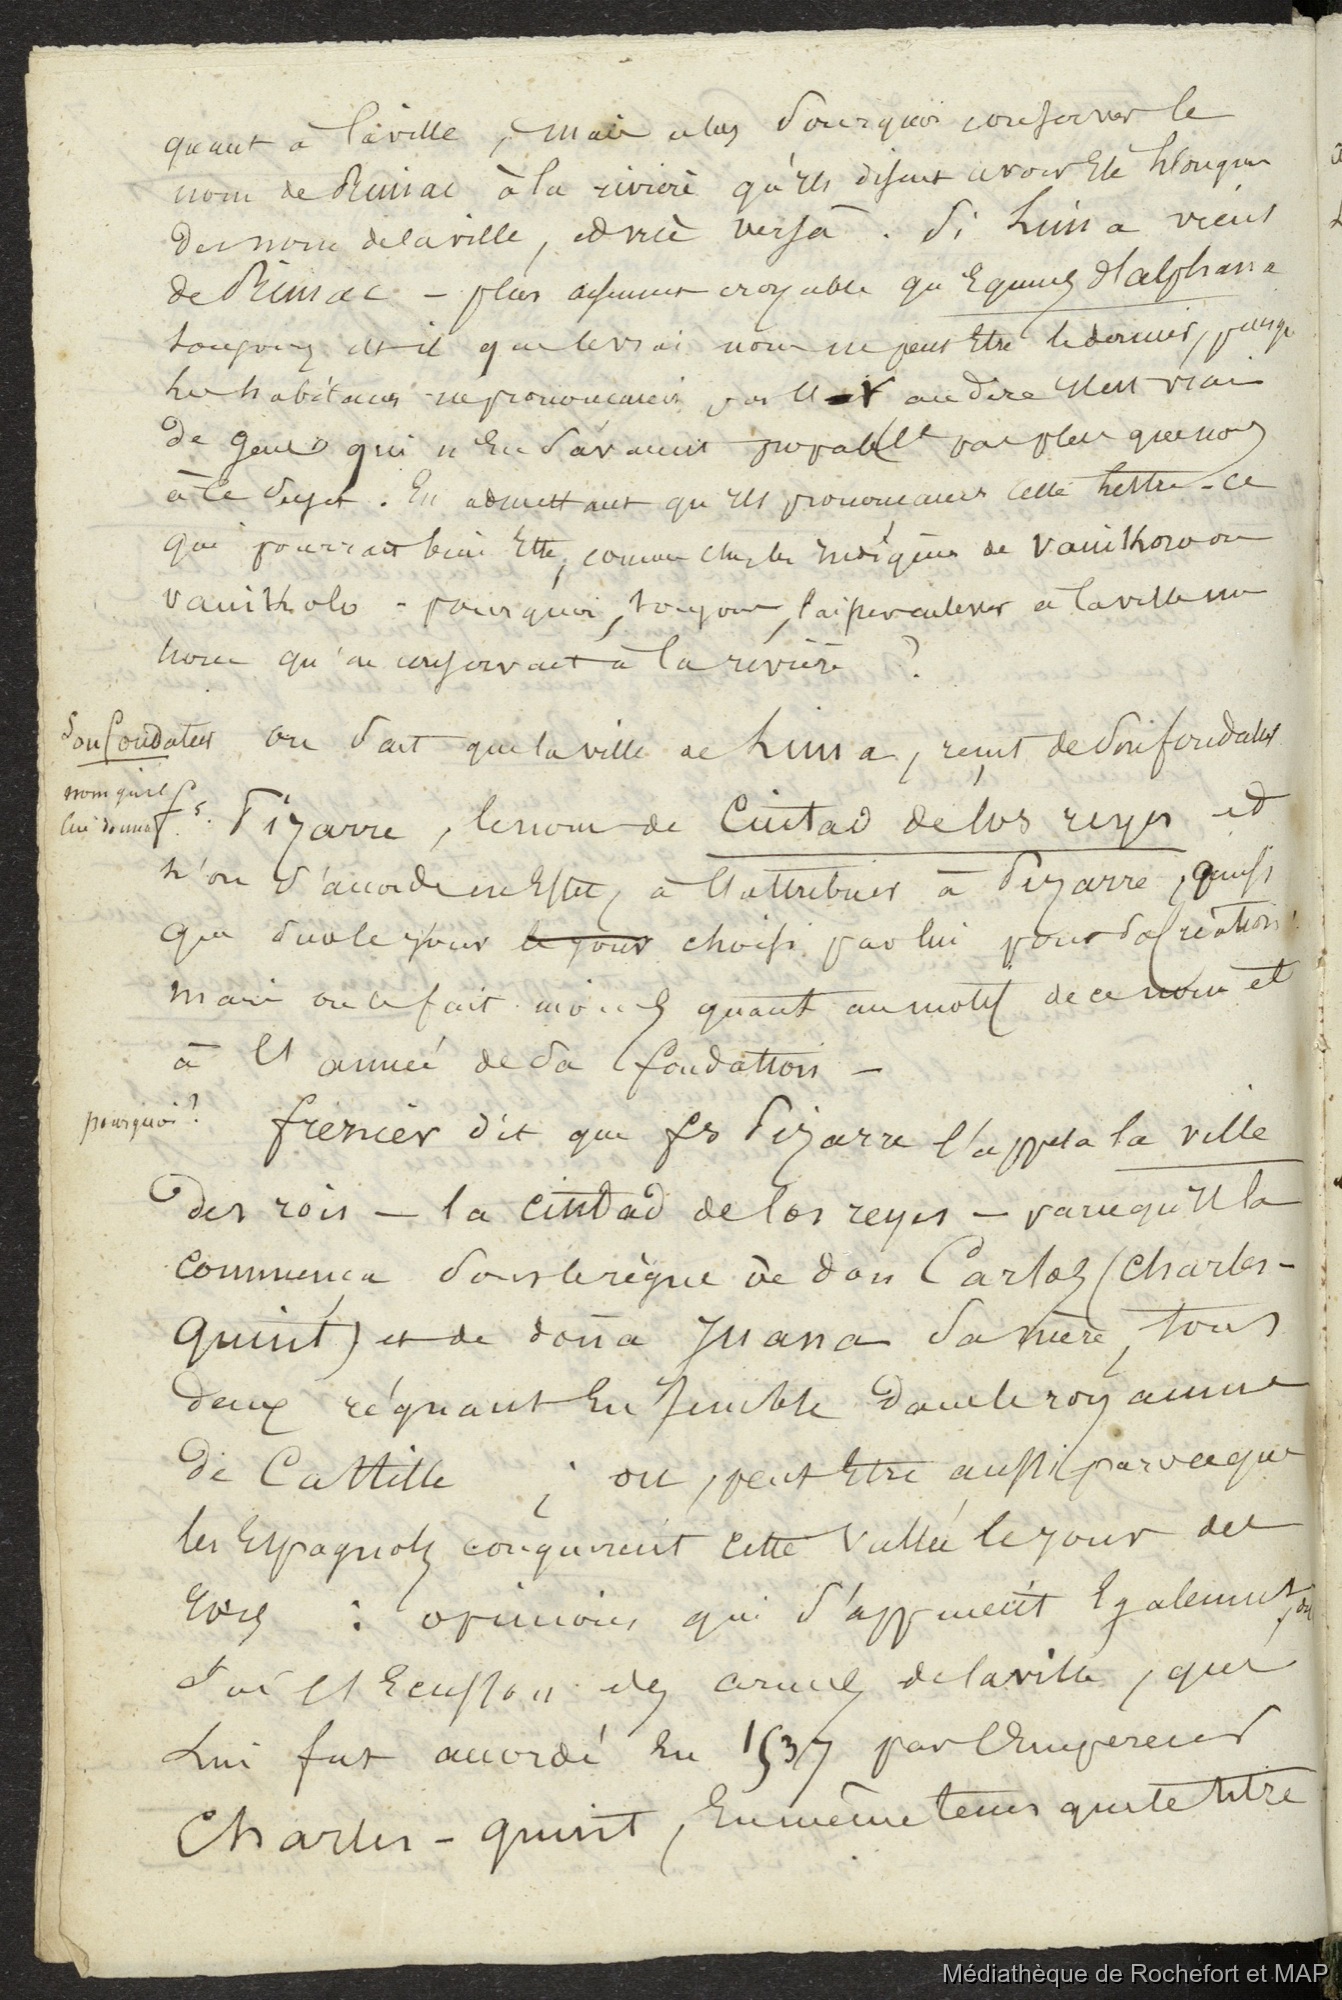 quant à la ville, mais alors pourquoi conserver le
nom de Rimac à la rivière qu'ils disent avoir été
du nom de la ville, et vice versâ. Si Lima vient
de Rimac - plus aisément croyable qu'Equus d'alphana
toujours est-il que le vrai nom ne peut être le dernier, puisque
les habitans ne prononcaient pas l'r au dire il est vrai
de gens qui n'en savaient probablt pas plus que nous
à ce sujet. En admettant qu'ils prononcaient cette lettre - ce
qui pourrait bien être, comme chez les indigènes de Vanikoro ou
Vanikolo - pourquoi, toujours, à la ville un
nom qu'on conservait à la rivière ?
Son fondateur
on sait que la ville de Lima, reçut de son fondateur
nom qu'il
lui donna
fs. Pizarre, le nom de Ciutad de los reyes et
l'on s'accorde en effet, à l'attribuer à Pizarre, ainsi
que sur le jour le jour choisi par lui pour sa création
mais on le fait moins quant au motif de ce nom et
à l'année de sa fondation -
pourquoi?
frezier dit que fs Pizarre l'appela la ville
des rois - la Ciutad de los reyes - parcequ'il la
commença sous le règne de don Carlos (Charles-
quint) et de doña Juana sa mère, tous
deux régnant ensemble dans le royaume
de Castille ; ou, peut être aussi parceque
les Espagnols conquirent cette vallée le jour des
Rois : opinions qui s'appuient également, dit
on sur l'Ecusson des armes de la ville, qui
lui fut accordé en 1537 par l'Empereur
Charles-quint, en même tems que le titre
Médiathèque de Rochefort et MAP